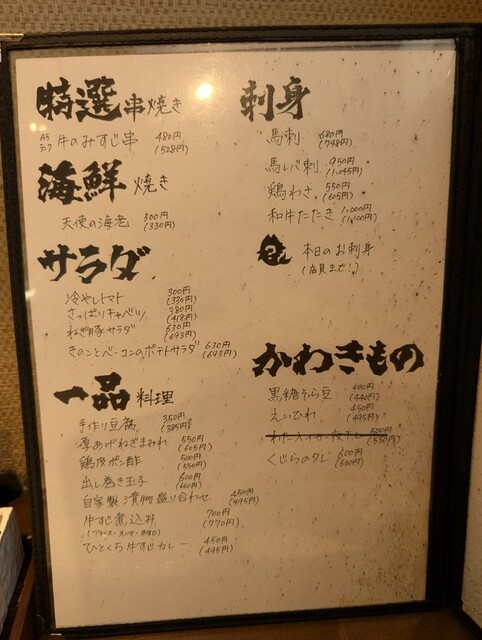 特選 串焼き
A5ランク 牛のみすじ串 480円(528円)
海鮮 焼き
天使の海老 300円(330円)
サラダ
冷やしトマト 300円(330円)
さっぱりキャベツ 380円(418円)
ねぎ豚サラダ 630円(693円)
きのことベーコンのポテトサラダ 630円(693円)
一品 料理
手作り豆腐 350円(385円)
厚あげねぎまみれ 550円(605円)
鶏皮ポン酢 500円(550円)
出し巻き玉子 600円(660円)
自家製漬物盛り合わせ 450円(495円)
牛すじ煮込み 700円(770円)
ひとくち牛すじカレー 450円(495円)
刺身
馬刺 680円(748円)
馬レバ刺 950円(1,045円)
鶏わさ 550円(605円)
和牛たたき 1,000円(1,100円)
本日のお刺身
(店員まで!)
かわきもの
黒糖そら豆 400円(440円)
えいひれ 450円(495円)
500円(550円)
くじらのタレ 600円(660円)